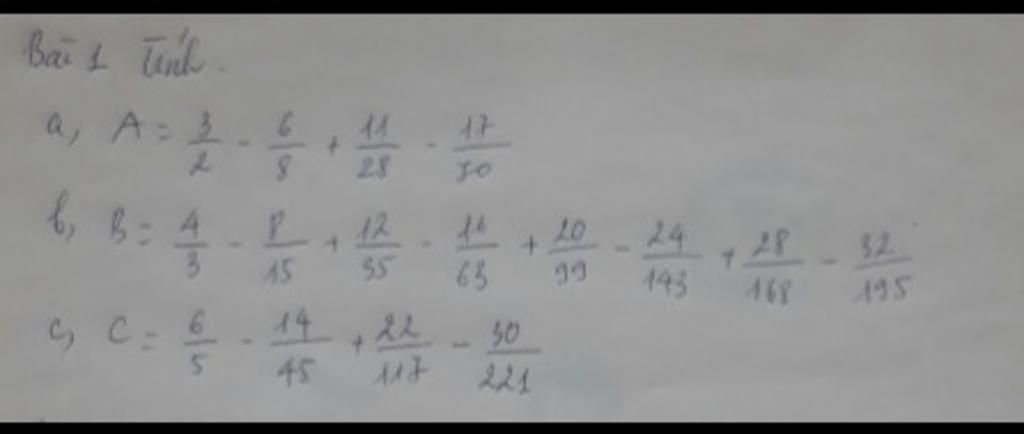 Bài 1 Tính.
a, A = 3/2 - 6/8 + 11/28 - 17/70
b, B = 4/3 - 8/15 + 12/35 - 16/63 + 20/99 - 24/143 + 28/168 - 32/195
c, C = 6/5 - 14/45 + 22/117 - 30/221